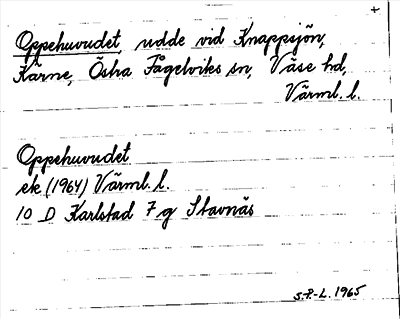 +
Oppehuvudet, udde vid Knappsjön,
Kärne, Östra Fågelviks sn, Väse hd,
Värml. l.
Oppehuvudet
ek (1964) Värml. l.
10 D Karlstad 7 g Stavnäs
S.P.-L. 1965